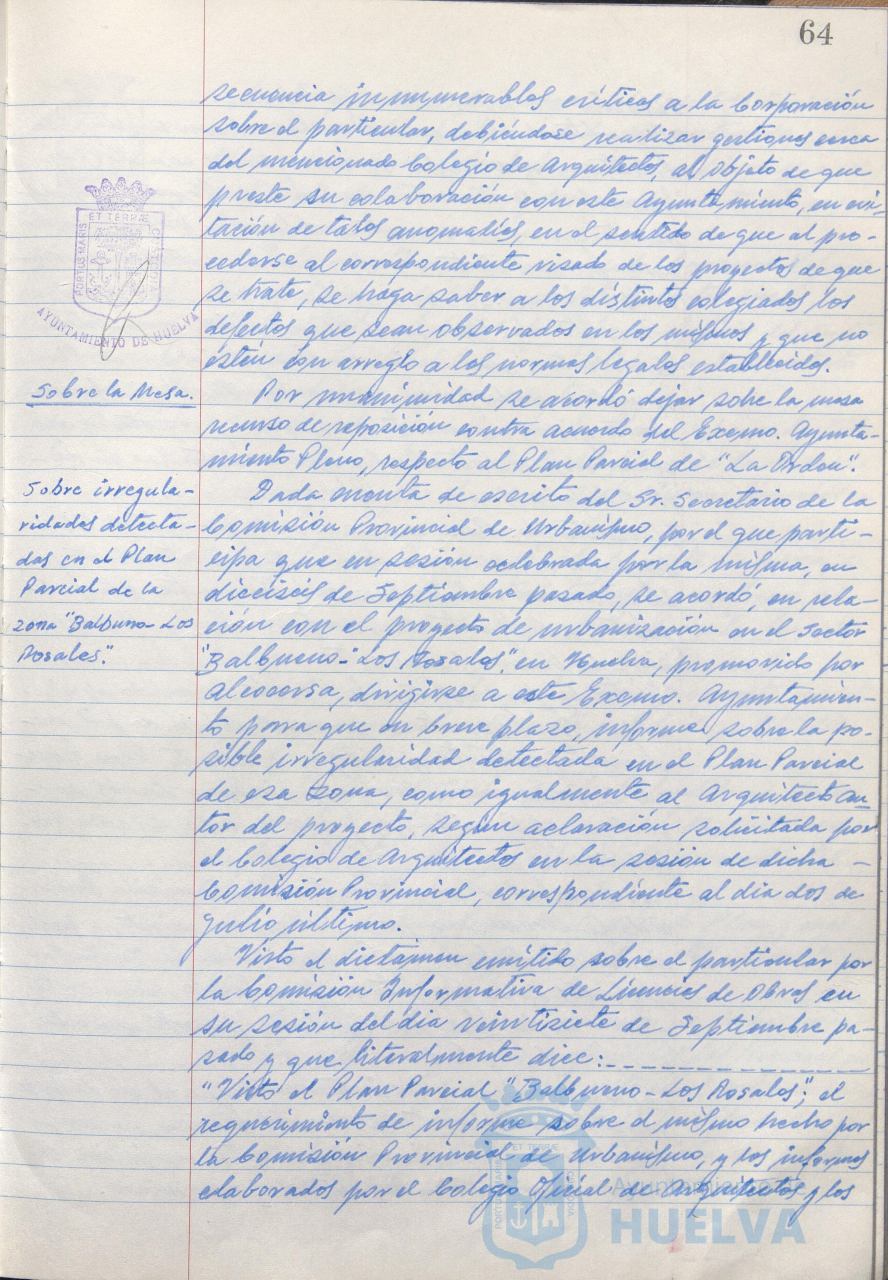 64
secuencia innumerables críticas a la Corporación
sobre el particular, debiéndose realizar gestiones cerca
del mencionado Colegio de Arquitectos, al objeto de que
preste su colaboración con este Ayuntamiento, en evi-
tación de tales anomalías, en el sentido de que al pro-
cederse al correspondiente visado de los proyectos de que
se trate, se haga saber a los distintos colegiados los
defectos que sean observados en los mismos y que no
estén con arreglo a las normas legales establecidas.
PORTUS MARIS
ET TERRAE
CUSTODIA
AYUNTAMIENTO DE HUELVA
Sobre la Mesa.
Por unanimidad se acordó dejar sobre la mesa
recurso de reposición contra acuerdo del Excmo. Ayunta-
miento Pleno, respecto al Plan Parcial de "La Orden".
Sobre irregula-
ridades detecta-
das en el Plan
Parcial de la
zona "Balbueno-Los
Rosales".
Dada cuenta de escrito del Sr. Secretario de la
Comisión Provincial de Urbanismo, por el que parti-
cipa que en sesión celebrada por la misma, en
dieciseis de Septiembre pasado, se acordó, en rela-
ción con el proyecto de urbanización en el Sector
"Balbueno-"Los Rosales". en Huelva, promovido por
Alcocersa, dirigirse a este Excmo. Ayuntamien-
to para que en breve plazo, informe sobre la po-
sible irregularidad detectada en el Plan Parcial
de esa zona, como igualmente al Arquitecto au-
tor del proyecto, segun aclaración solicitada por
el Colegio de Arquitectos en la sesión de dicha -
Comisión Provincial, correspondiente al dia dos de
Julio último.
Visto el dictámen emitido sobre el particular por
la Comisión Informativa de Licencias de Obras en
su sesión del dia veintisiete de Septiembre pa-
sado y que literalmente dice:- - - - - - - - - - - -
"Visto el Plan Parcial "Balbueno-Los Rosales"; el
requerimiento de informe sobre el mismo hecho por
la Comisión Provincial de Urbanismo, y los informes
elaborados por el Colegio Oficial de Arquitectos y los
Ayuntamiento de
HUELVA